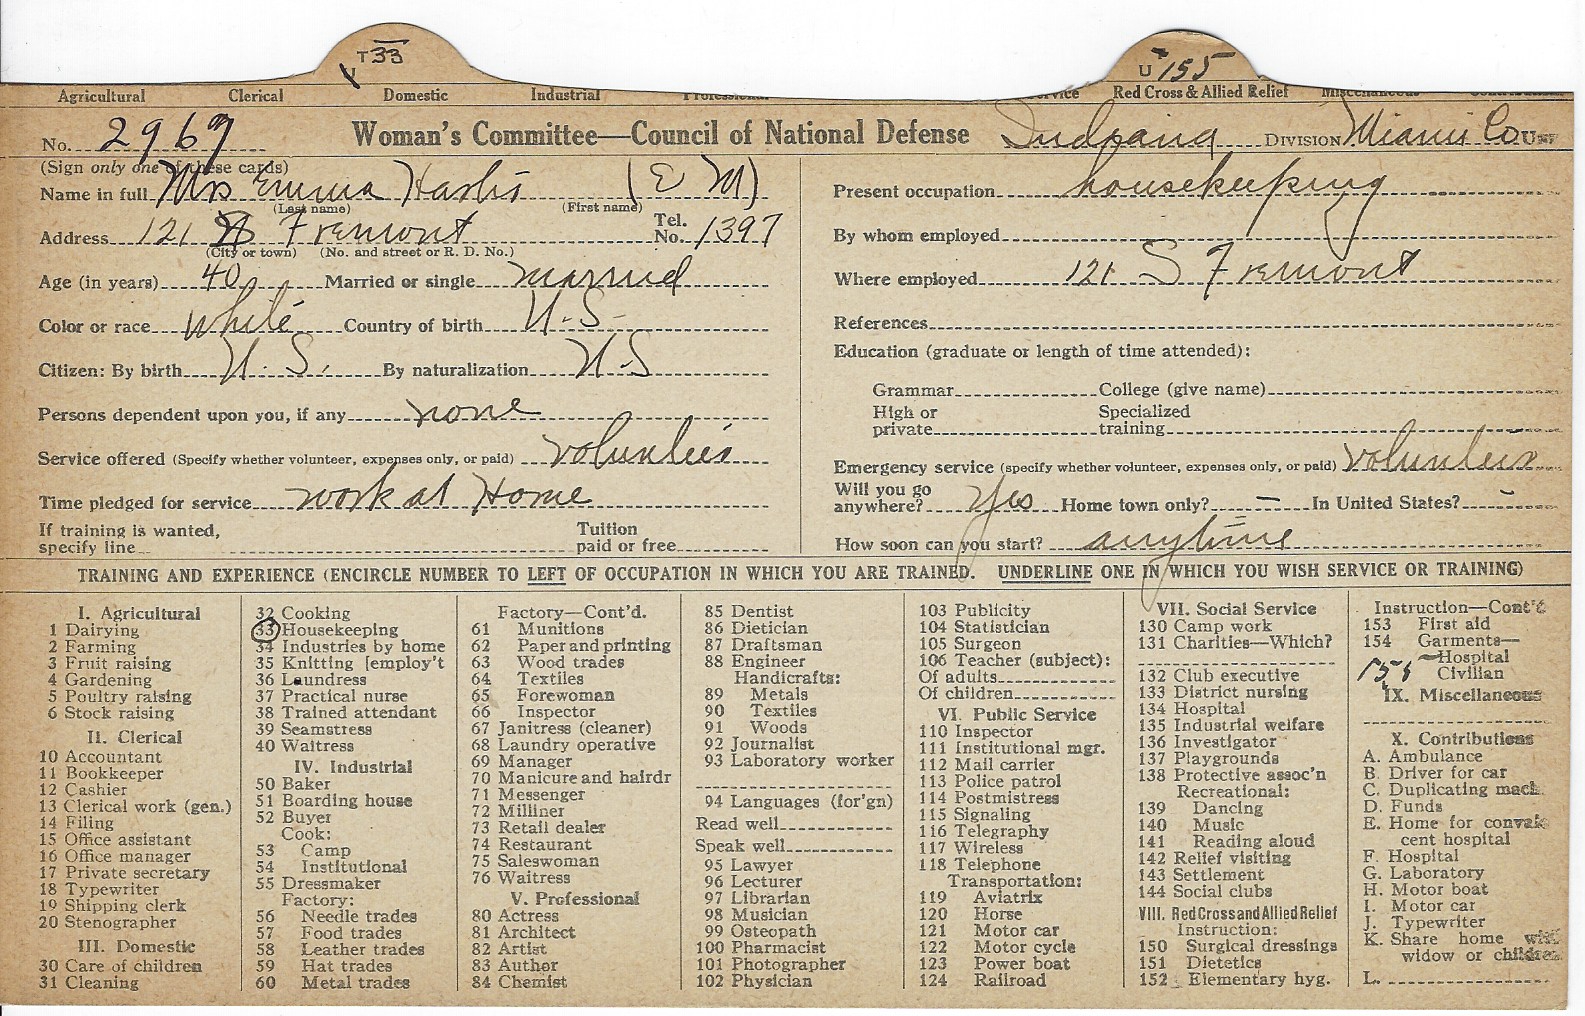 T 33
U 155
Agricultural Clerical Domestic Industrial Service Red Cross & Allied Relief Miscellaneous
No. 2967 Woman's Committee—Council of National Defense Indiana DIVISION Miami Co
(Sign only one of these cards)
Name in full Mrs Emma (E M)
(Last name) (First name)
Address 121 S Fremont Tel. No. 1397
(City or town) (No. and street or R. D. No.)
Age (in years) 40 Married or single married
Color or race white Country of birth U.S.
Citizen: By birth U.S. By naturalization U.S
Persons dependent upon you, if any none
Service offered (Specify whether volunteer, expenses only, or paid) volunteer
Time pledged for service work at Home
If training is wanted, specify line Tuition paid or free
Present occupation housekeeping
By whom employed
Where employed 121 S Fremont
References
Education (graduate or length of time attended):
Grammar College (give name)
High or private Specialized training
Emergency service (specify whether volunteer, expenses only, or paid) volunteer
Will you go anywhere? Yes Home town only? – In United States? –
How soon can you start? anytime
TRAINING AND EXPERIENCE (ENCIRCLE NUMBER TO LEFT OF OCCUPATION IN WHICH YOU ARE TRAINED. UNDERLINE ONE IN WHICH YOU WISH SERVICE OR TRAINING)
I. Agricultural
1 Dairying
2 Farming
3 Fruit raising
4 Gardening
5 Poultry raising
6 Stock raising
II. Clerical
10 Accountant
11 Bookkeeper
12 Cashier
13 Clerical work (gen.)
14 Filing
15 Office assistant
16 Office manager
17 Private secretary
18 Typewriter
19 Shipping clerk
20 Stenographer
III. Domestic
30 Care of children
31 Cleaning
32 Cooking
33 Housekeeping
34 Industries by home
35 Knitting [employ't
36 Laundress
37 Practical nurse
38 Trained attendant
39 Seamstress
40 Waitress
IV. Industrial
50 Baker
51 Boarding house
52 Buyer
Cook:
53 Camp
54 Institutional
55 Dressmaker
Factory:
56 Needle trades
57 Food trades
58 Leather trades
59 Hat trades
60 Metal trades
Factory—Cont'd.
61 Munitions
62 Paper and printing
63 Wood trades
64 Textiles
65 Forewoman
66 Inspector
67 Janitress (cleaner)
68 Laundry operative
69 Manager
70 Manicure and hairdr
71 Messenger
72 Milliner
73 Retail dealer
74 Restaurant
75 Saleswoman
76 Waitress
V. Professional
80 Actress
81 Architect
82 Artist
83 Author
84 Chemist
85 Dentist
86 Dietician
87 Draftsman
88 Engineer
Handicrafts:
89 Metals
90 Textiles
91 Woods
92 Journalist
93 Laboratory worker
94 Languages (for'gn)
Read well
Speak well
95 Lawyer
96 Lecturer
97 Librarian
98 Musician
99 Osteopath
100 Pharmacist
101 Photographer
102 Physician
103 Publicity
104 Statistician
105 Surgeon
106 Teacher (subject):
Of adults
Of children
VI. Public Service
110 Inspector
111 Institutional mgr.
112 Mail carrier
113 Police patrol
114 Postmistress
115 Signaling
116 Telegraphy
117 Wireless
118 Telephone
Transportation:
119 Aviatrix
120 Horse
121 Motor car
122 Motor cycle
123 Power boat
124 Railroad
VII. Social Service
130 Camp work
131 Charities—Which?
132 Club executive
133 District nursing
134 Hospital
135 Industrial welfare
136 Investigator
137 Playgrounds
138 Protective assoc'n
Recreational:
139 Dancing
140 Music
141 Reading aloud
142 Relief visiting
143 Settlement
144 Social clubs
VIII. Red Cross and Allied Relief
Instruction:
150 Surgical dressings
151 Dietetics
152 Elementary hyg.
Instruction—Cont'd
153 First aid
154 Garments—
Hospital
Civilian
IX. Miscellaneous
X. Contributions
A. Ambulance
B. Driver for car
C. Duplicating mach.
D. Funds
E. Home for convales
cent hospital
F. Hospital
G. Laboratory
H. Motor boat
I. Motor car
J. Typewriter
K. Share home with
widow or children
L.